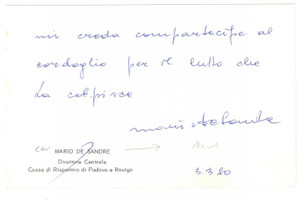 mi creda compartecipe al
cordoglio per il lutto che
La colpisce
MARIO DE SANDRE
Direttore Centrale
Cassa di Risparmio di Padova e Rovigo
3.3.80